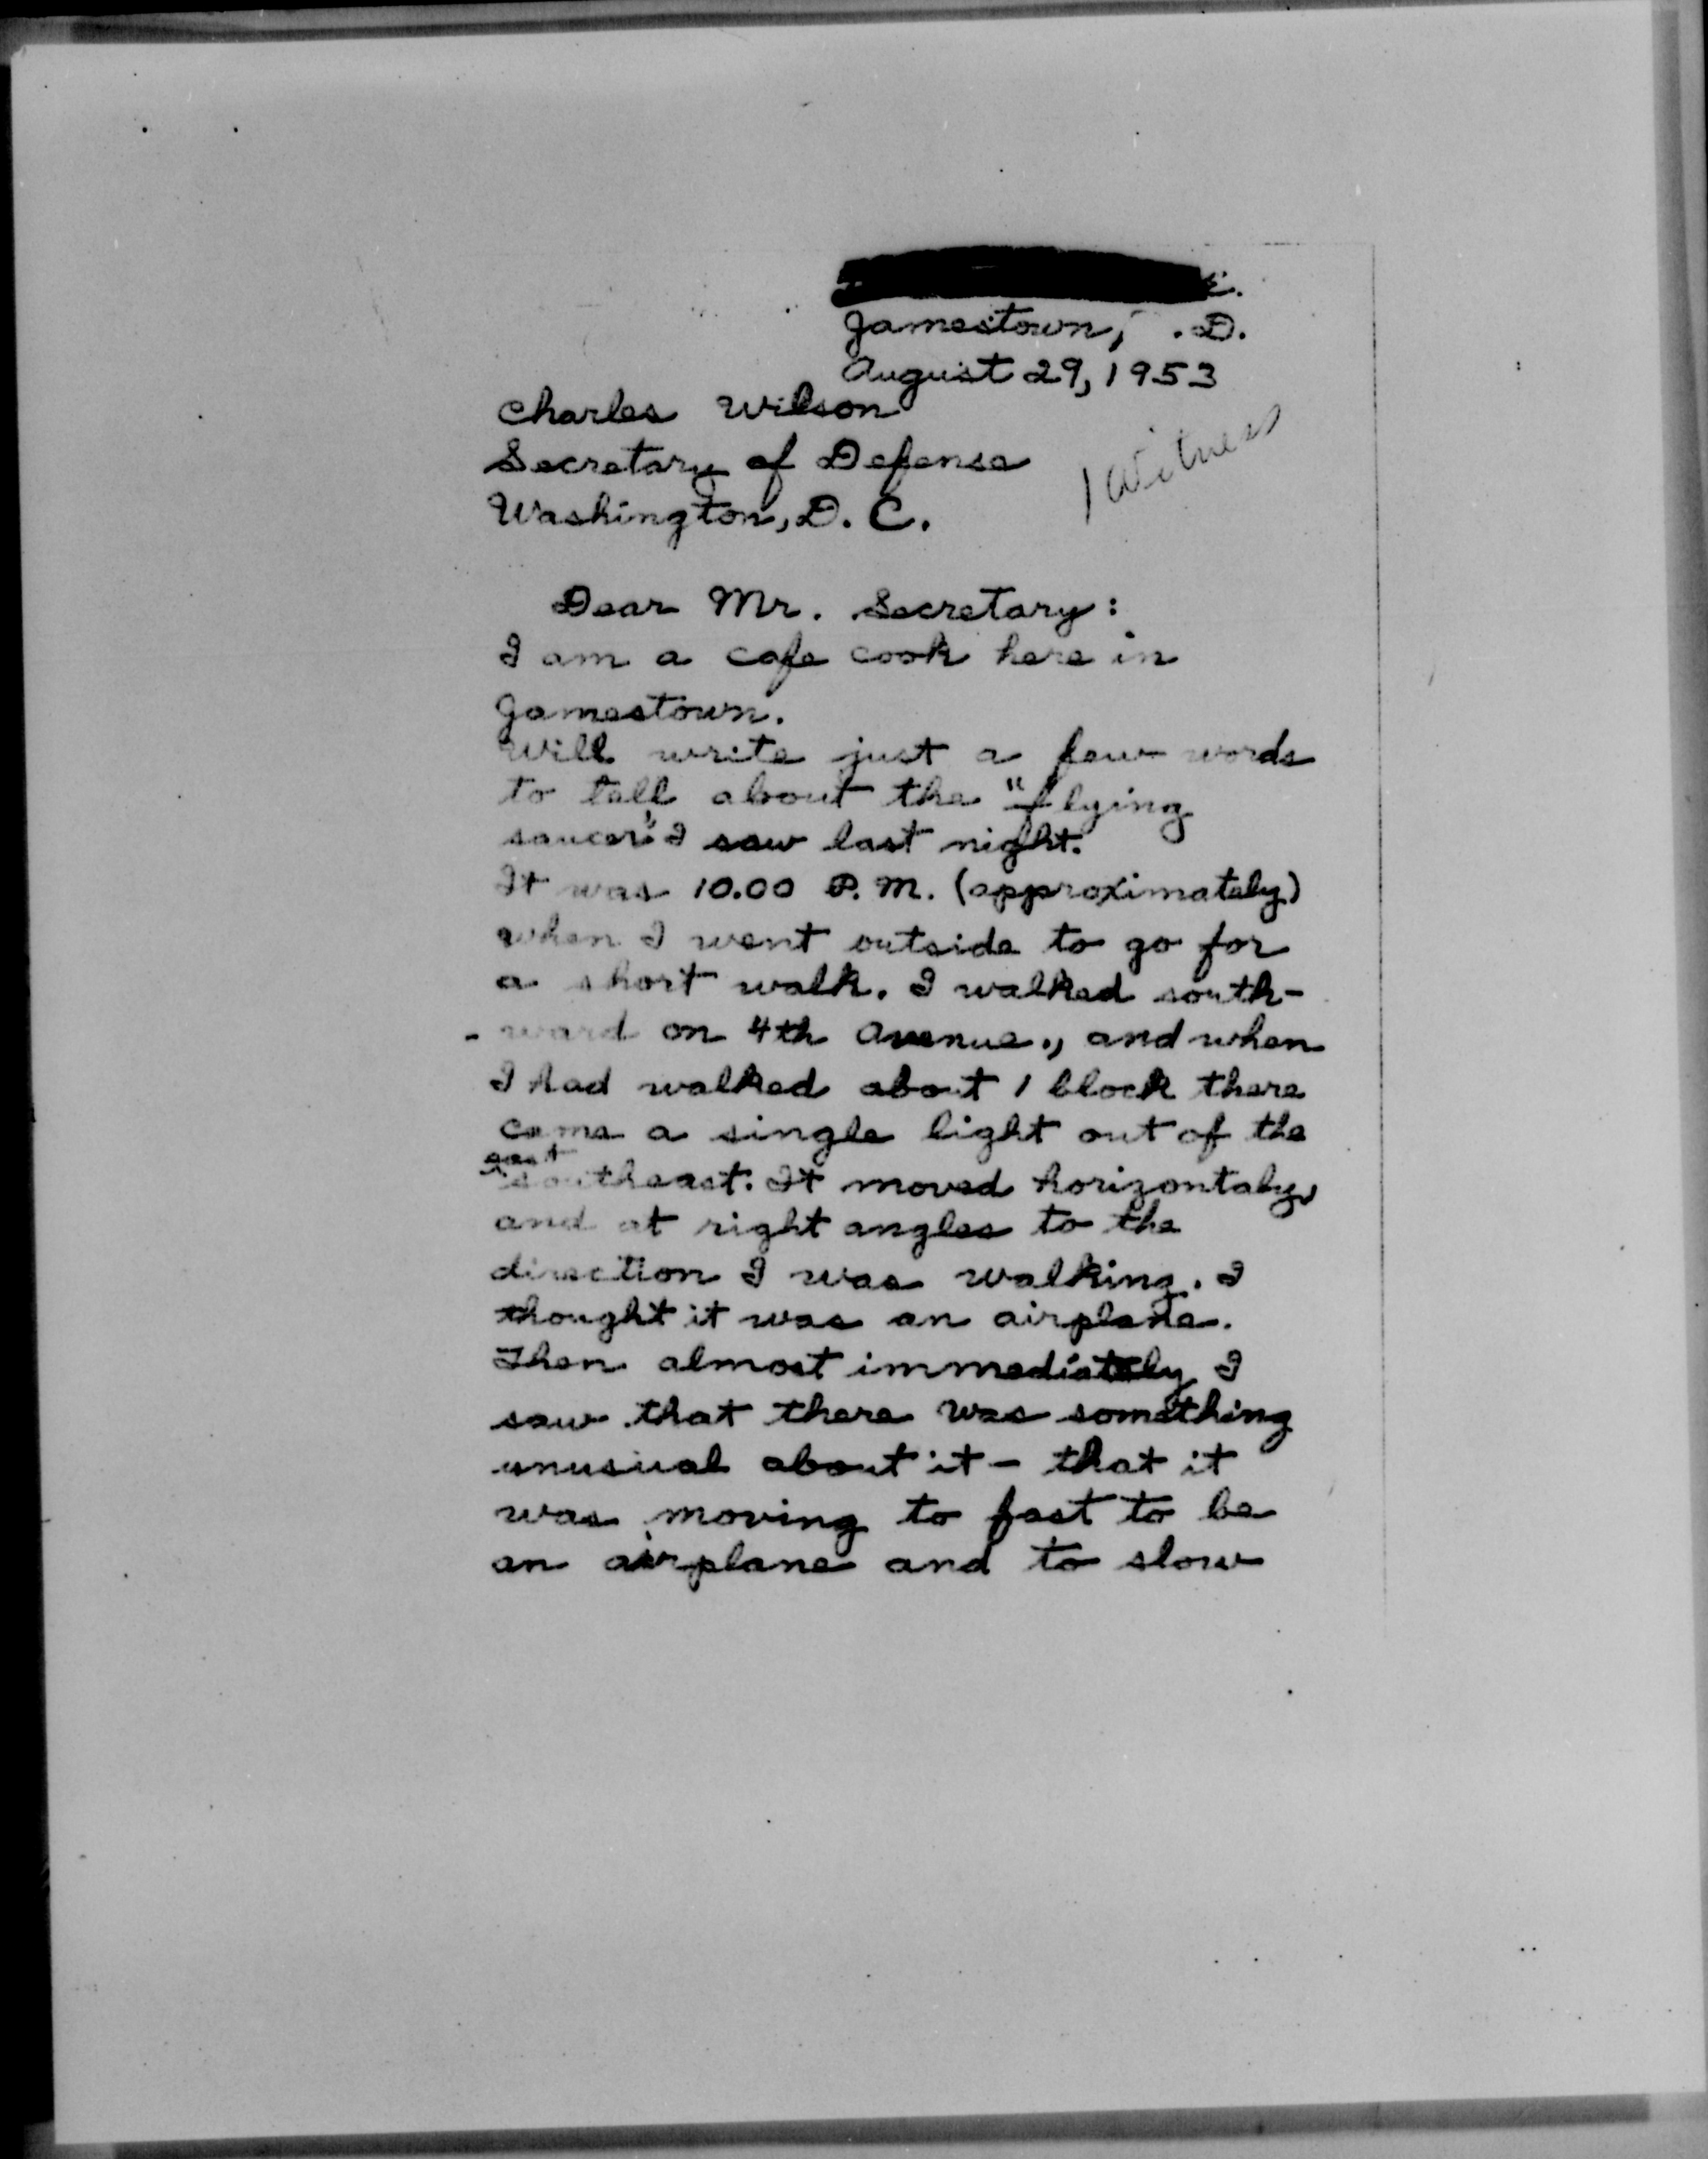 E.
Jamestown, .D.
August 29, 1953
Charles Wilson
Secretary of Defense
Washington, D. C.
1 Witness
Dear Mr. Secretary:
I am a cafe cook here in
Jamestown.
Will write just a few words
to tell about the "flying
saucer" I saw last night.
It was 10.00 P.M. (approximately)
when I went outside to go for
a short walk. I walked south-
- ward on 4th Avenue., and when
I had walked about 1 block there
came a single light out of the
east
southeast. It moved horizontaly,
and at right angles to the
direction I was walking. I
thought it was an airplane.
Then almost immediately I
saw that there was something
unusual about it - that it
was moving to fast to be
an airplane and to slow